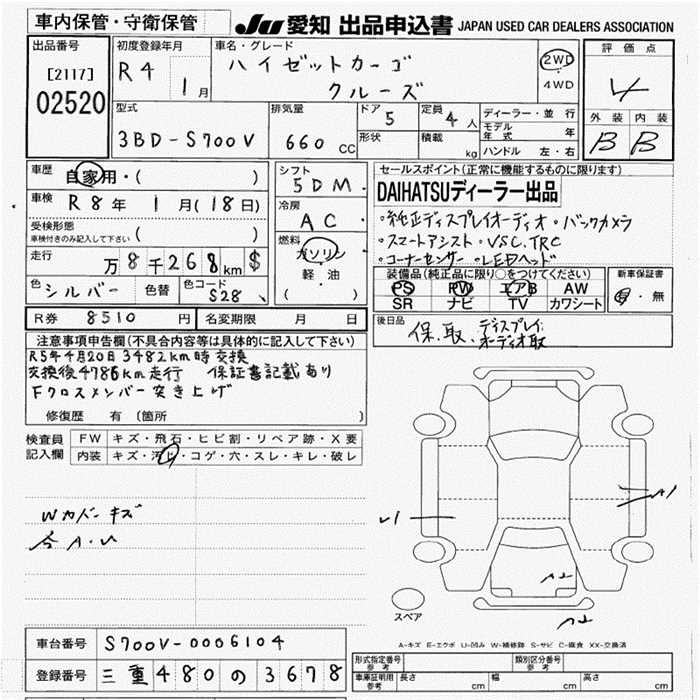 車内保管・守衛保管
JU 愛知 出品申込書 JAPAN USED CAR DEALERS ASSOCIATION
出品番号
[2117]
02520
初度登録年月
R4 1月
車名・グレード
ハイゼットカーゴ
クルーズ
2WD
4WD
評価点
4
外装 内装
B B
型式
3BD-S700V
排気量
660 CC
ドア
5
形状
定員
4人
積載
kg
ディーラー・並行
モデル年式 年
ハンドル 左・右
車歴
自家用・( )
車検 R8年 1月(18日)
受検形態
車検付きのみ記入して下さい ( )
走行 万8千268km $
色 シルバー 色替 色コード S28
R券 8510円 名変期限 月 日
シフト
5DM
冷房
AC
燃料
ガソリン
軽・油
( )
セールスポイント(正常に機能するものに限ります)
DAIHATSUディーラー出品
・純正ディスプレイオーディオ・バックカメラ
・スマートアシスト・VSC.TRC
・コーナーセンサー・LEDヘッド
装備品(純正品に限り○をつけてください)
PS PW エアB AW
SR ナビ TV カワシート
新車保証書
有・無
後日品
保.取.ディスプレイ
オーディオ取
注意事項申告欄(不具合内容等は具体的に記入して下さい)
R5年4月20日3482km時交換
交換後4786km走行 保証書記載あり
Fクロスメンバー突き上げ
修復歴 有(箇所 )
検査員記入欄
FW キズ・飛石・ヒビ割・リペア跡・X要
内装 キズ・汚れ・コゲ・穴・スレ・キレ・破レ
Wカバーキズ
各A.U
U1
A1
A2
A2
スペア
A-キズ E-エクボ U-凹み W-補修跡 S-サビ C-腐食 XX-交換済
車台番号 S700V-0006104
登録番号 三重480の3678
形式指定番号 参考
類別区分番号 参考
車庫証明用 参考 長さ cm 幅 cm 高さ cm